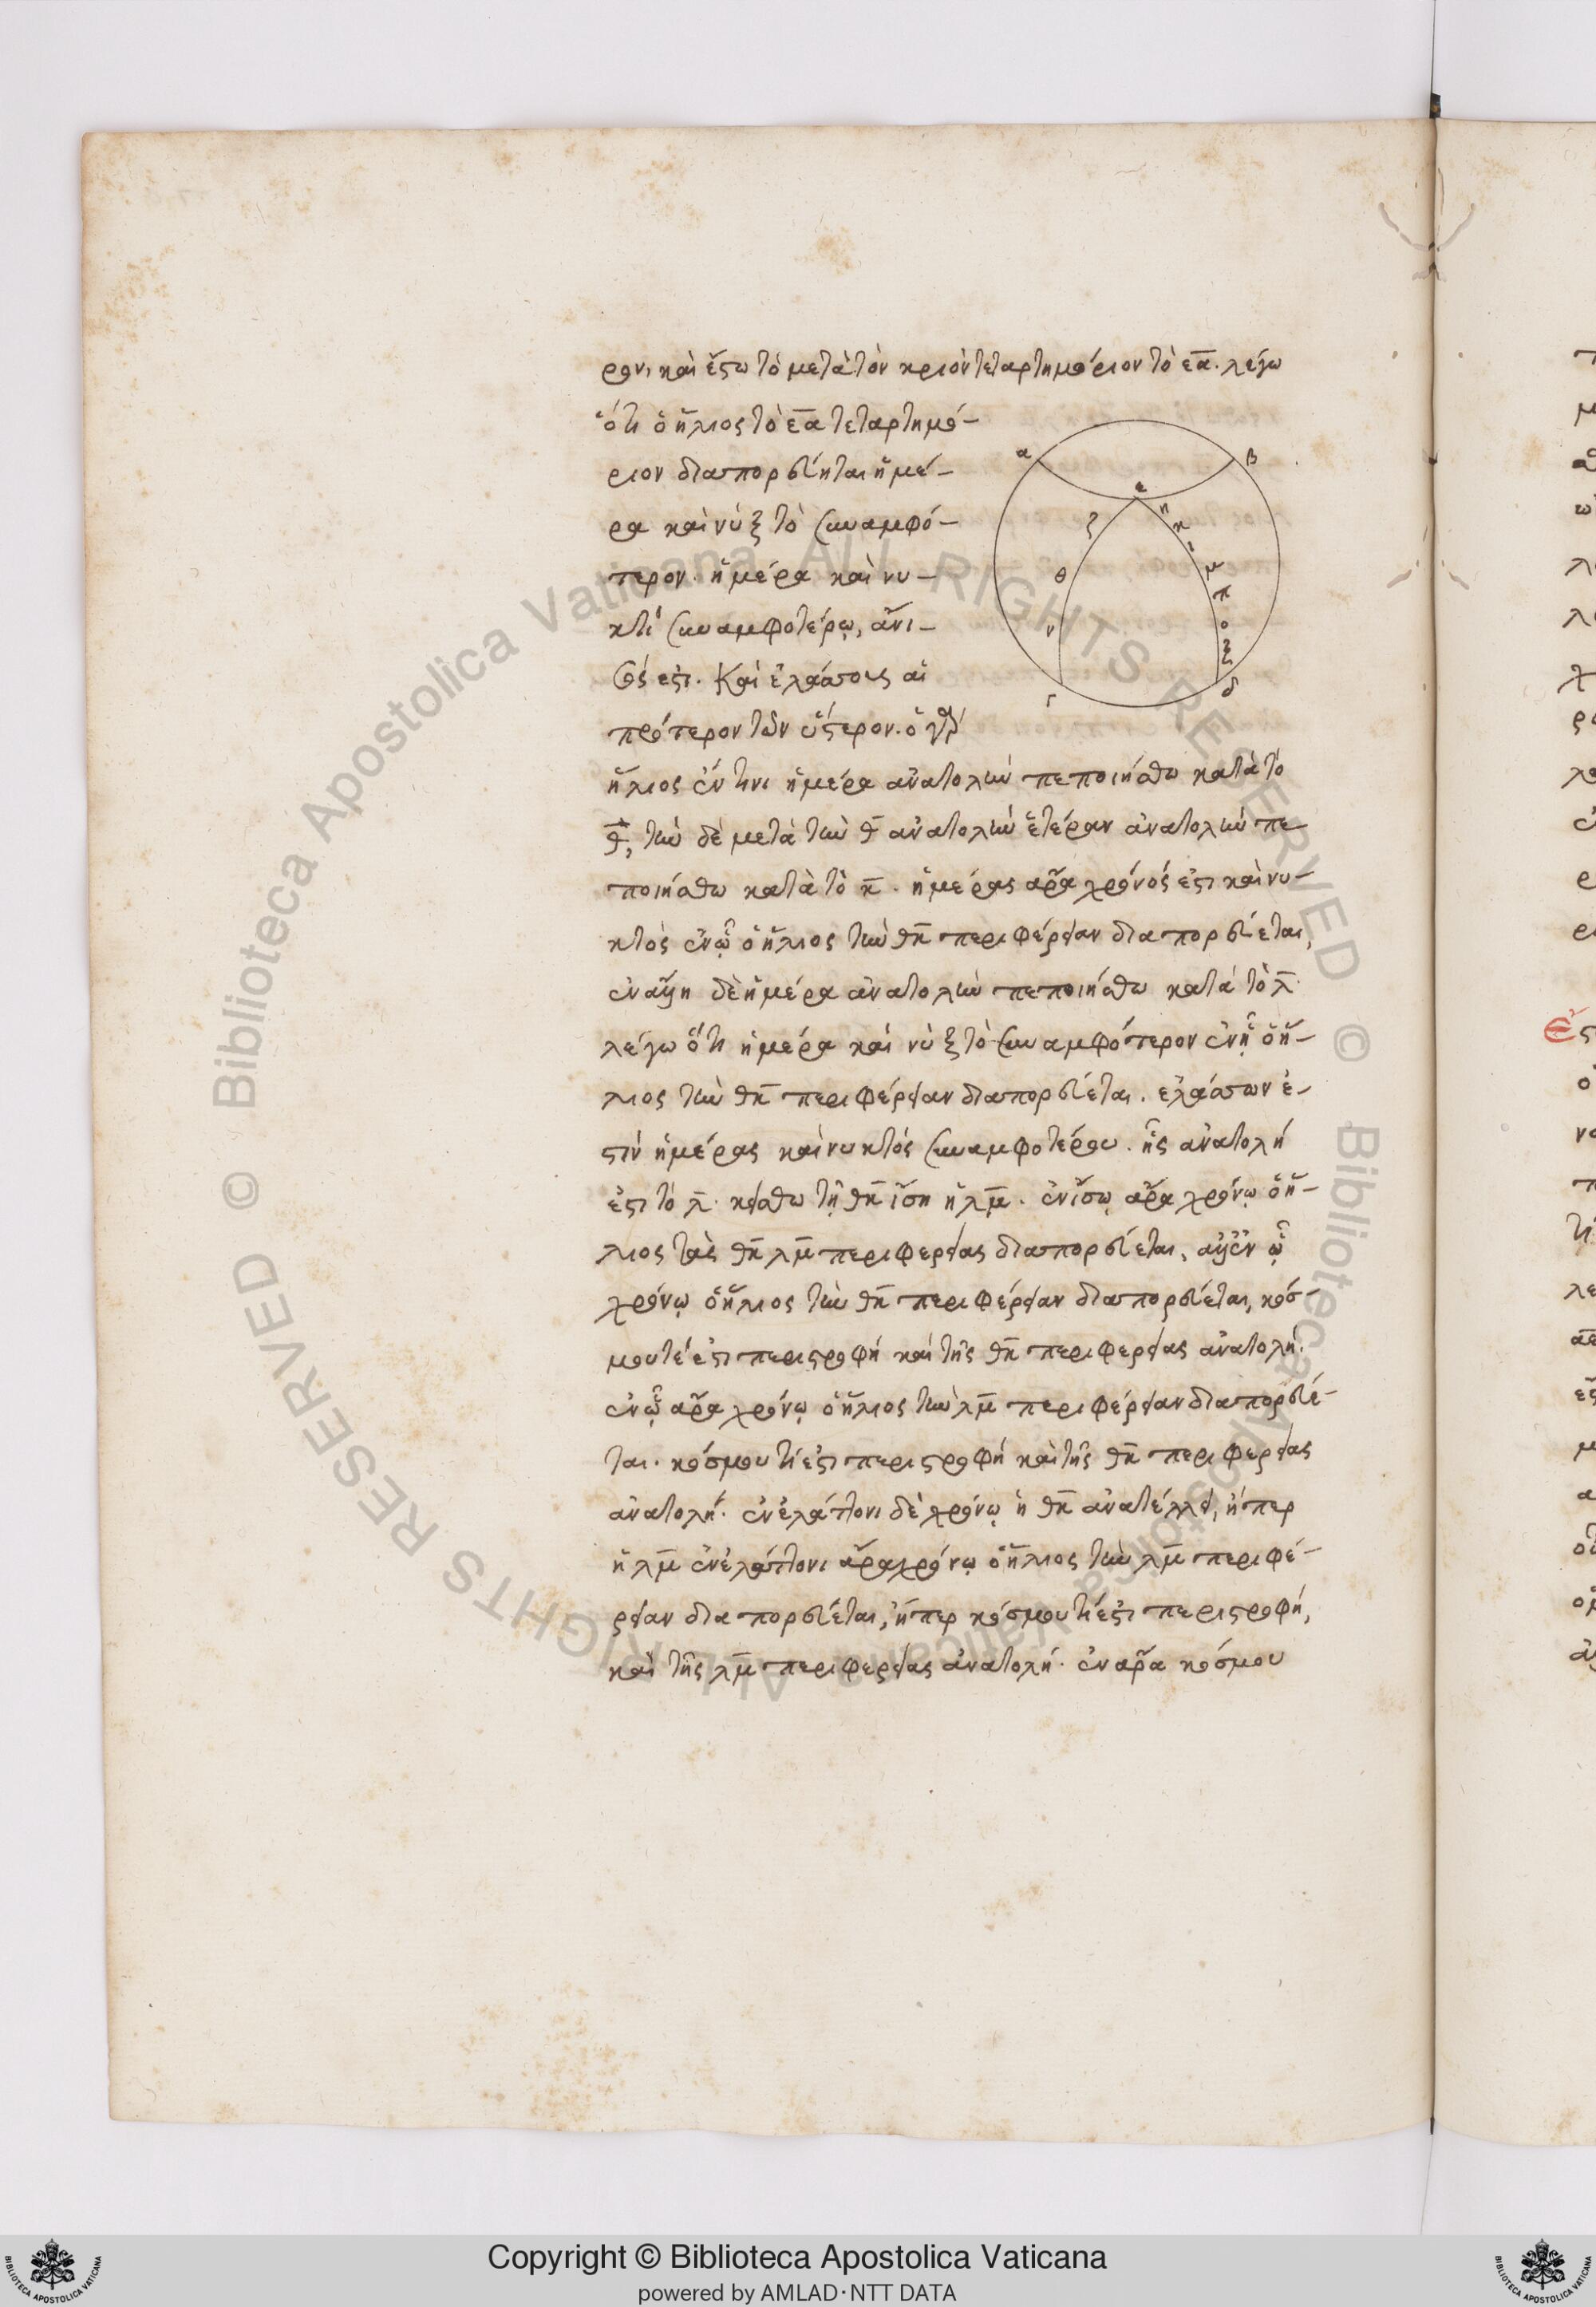 ρον, καὶ ἔστω τὸ μετὰ τὸν κριὸν τεταρτημόριον τὸ εα. λέγω
ὅτι ὁ ἥλιος τὸ εα τεταρτημό-
ριον διαπορεύηται ἡμέ-
ρα καὶ νὺξ τὸ συναμφό-
τερον. ἡμέρα καὶ νυ-
κτὶ συναμφοτέρῳ, ἄνι-
σός ἐστι. Καὶ ἐλάσσους αἱ
πρότερον τῶν ὕστερον. ὁ γὰρ
ἥλιος ἐν τινι ἡμέρα ἀνατολὴν πεποιήσθω κατὰ τὸ
θ, τὴν δὲ μετὰ τὴν θ ἀνατολὴν ἑτέραν ἀνατολὴν πε-
ποιήσθω κατὰ τὸ κ. ἡμέρας ἄρα χρόνός ἐστι καὶ νυ-
κτὸς ἐν ᾧ ὁ ἥλιος τὴν θκ περιφέρειαν διαπορεύεται,
ἐν ἄλλῃ δὲ ἡμέρα ἀνατολὴν πεποιήσθω κατὰ τὸ λ.
λέγω ὅτι ἡμέρα καὶ νὺξ τὸ συναμφότερον ἐν ᾗ ὁ ἥ-
λιος τὴν θκ περιφέρειαν διαπορεύεται. ἐλάσσων ἐ-
στὶν ἡμέρας καὶ νυκτὸς συναμφοτέρου. ἧς ἀνατολή
ἐστι τὸ λ. κείσθω τῇ θκ ἴση ἡ λμ. ἐν ἴσῳ ἄρα χρόνῳ ὁ ἥ-
λιος τὰς θκ λμ περιφερείας διαπορεύεται, ἀλλ' ἐν ᾧ
χρόνῳ ὁ ἥλιος τὴν θκ περιφέρειαν διαπορεύεται, κόσ-
μου τέ ἐστι περιστροφή καὶ τῆς θκ περιφερείας ἀνατολή.
ἐν ᾧ ἄρα χρόνῳ ὁ ἥλιος τὴν λμ περιφέρειαν διαπορεύε-
ται. κόσμου τέ ἐστι περιστροφή καὶ τῆς θκ περιφερείας
ἀνατολή. ἐν ἐλάττονι δὲ χρόνῳ ἡ θκ ἀνατέλλει, ἤπερ
ἡ λμ ἐν ἐλάττονι ἄρα χρόνῳ ὁ ἥλιος τὴν λμ περιφέ-
ρειαν διαπορεύεται, ἤπερ κόσμου τέ ἐστι περιστροφή,
καὶ τῆς λμ περιφερείας ἀνατολή. ἐν ἄρα κόσμου
α
β
ε
ζ
η
κ
θ
μ
π
ν
ο
ξ
γ
δ
© Biblioteca Apostolica Vaticana ALL RIGHTS RESERVED © Biblioteca Apostolica Vaticana ALL RIGHTS RESERVED
Copyright © Biblioteca Apostolica Vaticana
powered by AMLAD·NTT DATA
BIBLIOTECA APOSTOLICA VATICANA
BIBLIOTECA APOSTOLICA VATICANA